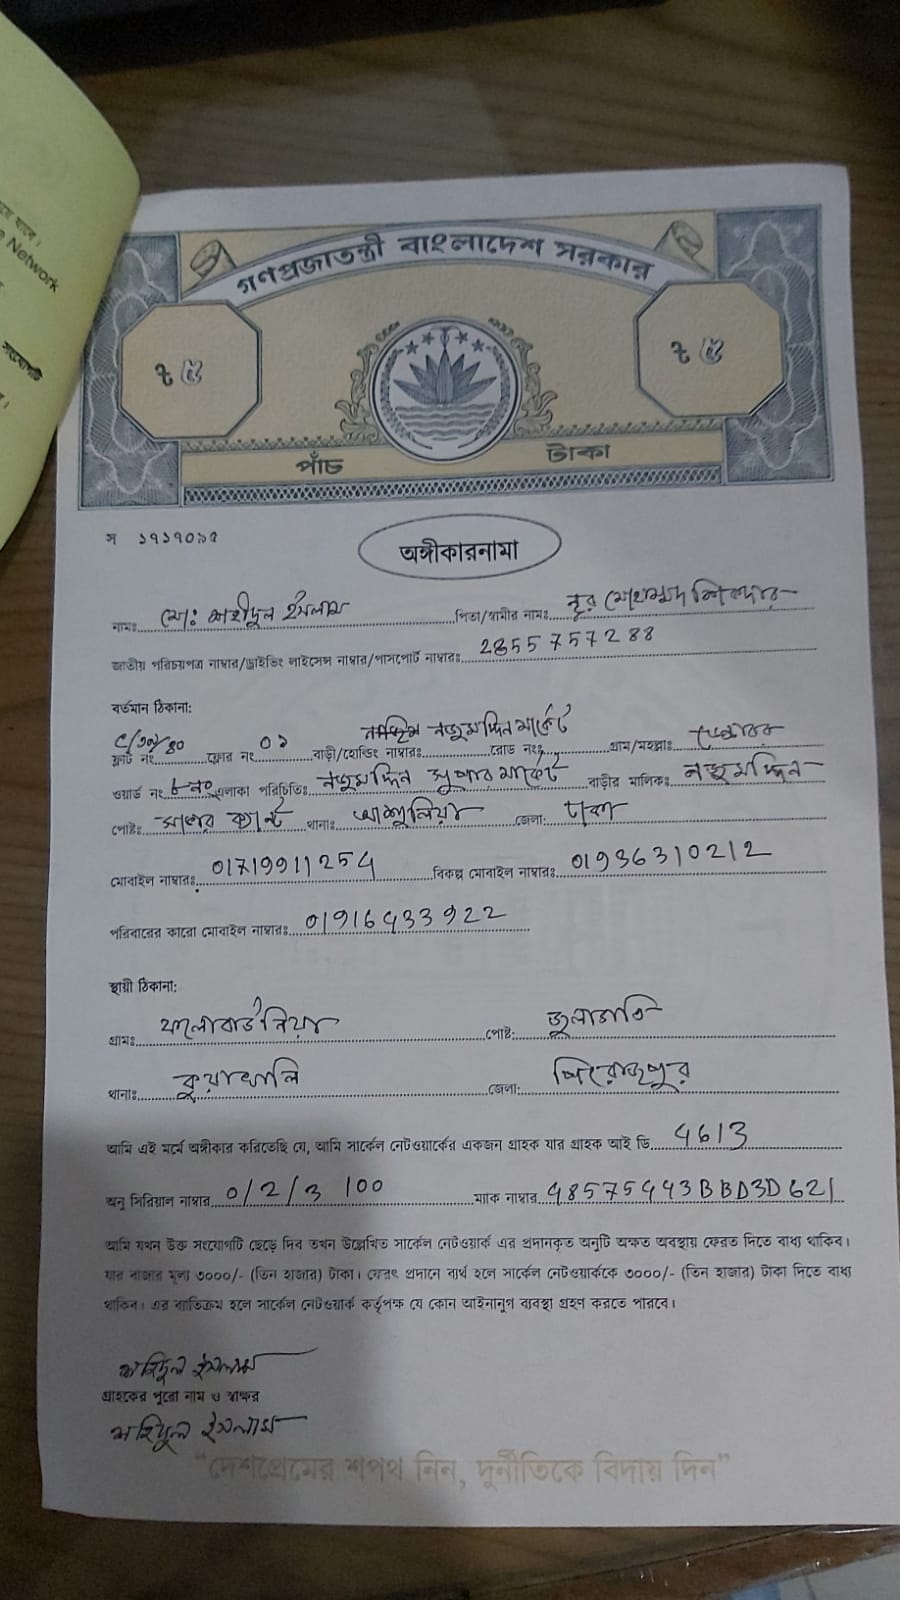 Network
গণপ্রজাতন্ত্রী বাংলাদেশ সরকার
৳ ৫ ৳ ৫
পাঁচ টাকা
স ১৭১৭০৯৫
অঙ্গীকারনামা
নামঃ মোঃ শহীদুল ইসলাম পিতা/স্বামীর নামঃ নূর মোহাম্মদ সিকদার
জাতীয় পরিচয়পত্র নাম্বার/ড্রাইভিং লাইসেন্স নাম্বার/পাসপোর্ট নাম্বারঃ 2855757288
বর্তমান ঠিকানা:
ফ্লাট নং ফ্লোর নং ০১ বাড়ী/হোল্ডিং নাম্বারঃ নজুমদ্দিন মার্কেট রোড নংঃ গ্রাম/মহল্লাঃ
ওয়ার্ড নং ৮নং এলাকা পরিচিতিঃ নজুমদ্দিন সুপার মার্কেট বাড়ীর মালিকঃ নজুমদ্দিন
পোষ্টঃ সাভার ক্যান্ট থানাঃ আশুলিয়া জেলা: ঢাকা
মোবাইল নাম্বারঃ 01719911254 বিকল্প মোবাইল নাম্বারঃ 01936310212
পরিবারের কারো মোবাইল নাম্বারঃ 01916433922
স্থায়ী ঠিকানা:
গ্রামঃ পোষ্ট: জুলাগাতি
থানাঃ কুয়াখালি জেলা: পিরোজপুর
আমি এই মর্মে অঙ্গীকার করিতেছি যে, আমি সার্কেল নেটওয়ার্কের একজন গ্রাহক যার গ্রাহক আই ডি 4613
অনু সিরিয়াল নাম্বার 0/2/3 100 ম্যাক নাম্বার 48575443BBD3D621
আমি যখন উক্ত সংযোগটি ছেড়ে দিব তখন উল্লেখিত সার্কেল নেটওয়ার্ক এর প্রদানকৃত অনুটি অক্ষত অবস্থায় ফেরত দিতে বাধ্য থাকিব।
যার বাজার মূল্য ৩০০০/- (তিন হাজার) টাকা। ফেরৎ প্রদানে ব্যর্থ হলে সার্কেল নেটওয়ার্ককে ৩০০০/- (তিন হাজার) টাকা দিতে বাধ্য
থাকিব। এর ব্যতিক্রম হলে সার্কেল নেটওয়ার্ক কর্তৃপক্ষ যে কোন আইনানুগ ব্যবস্থা গ্রহণ করতে পারবে।
শহিদুল ইসলাম
গ্রাহকের পুরো নাম ও স্বাক্ষর
শহিদুল ইসলাম
"দেশপ্রেমের শপথ নিন, দুর্নীতিকে বিদায় দিন"